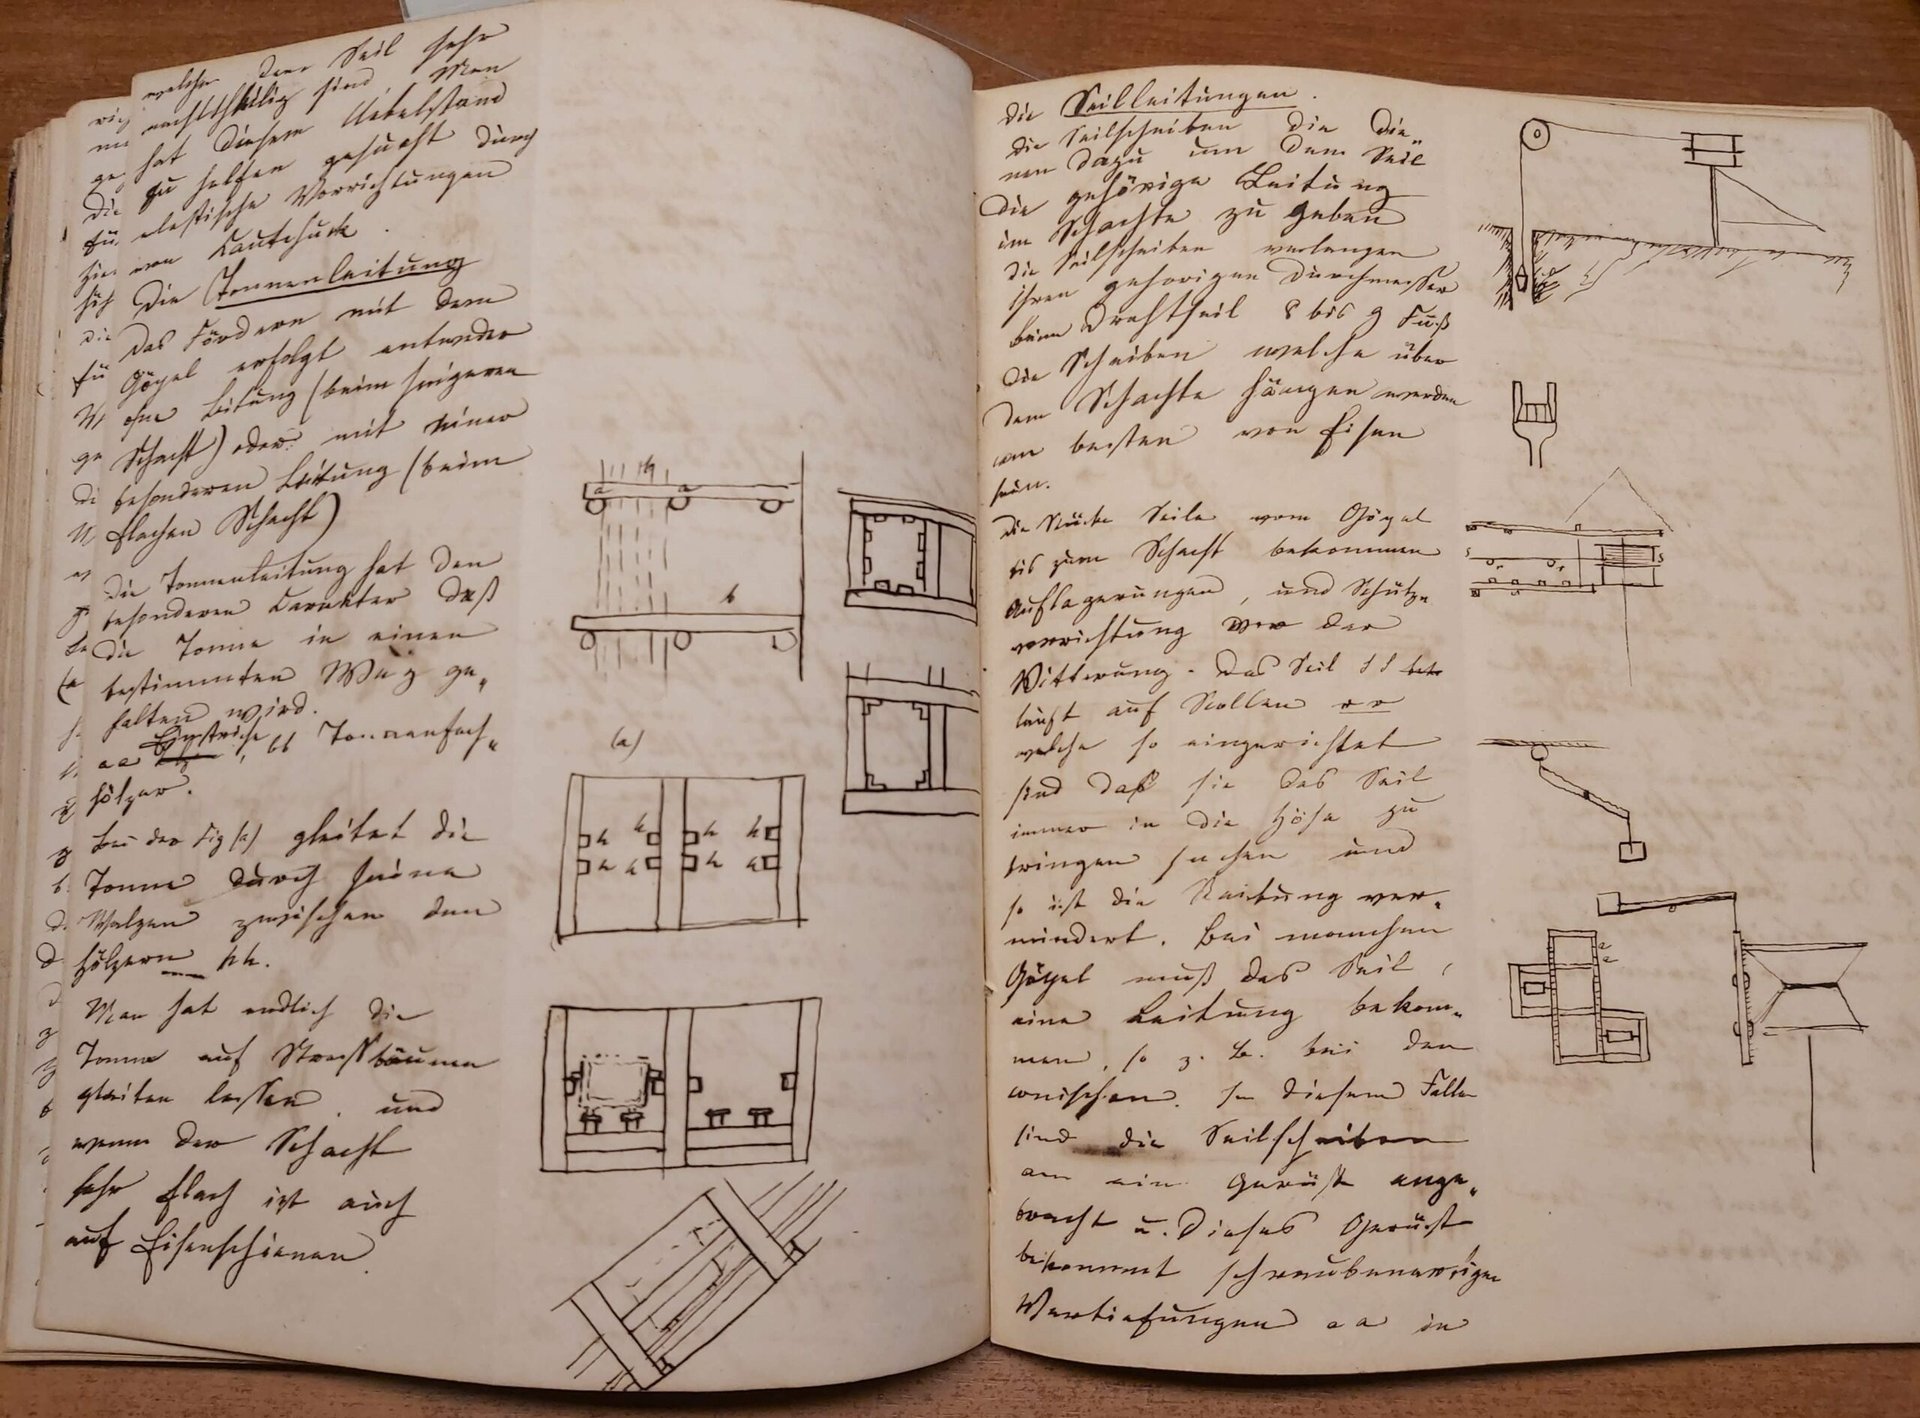 welche dem Seil sehr
nachttheilig sind Man
hat diesem Uebelstand
zu helfen gesucht durch
elastische Vorrichtungen
von Kautchuk.
Die Tonnenleitung
Das Fördern mit dem
Göpel erfolgt entweder
ohne Leitung (beim seigeren
Schacht) oder mit einer
besonderen Leitung (beim
flachen Schacht)
Die Tonnenleitung hat den
besonderen Karakter daß
die Tonne in einen
bestimmten Weg ge„
halten wird.
aa Einstriche, bb Tonnenfach„
hölzer.
Bei der Fig (a) gleitet die
Tonne durch seine
Walzen zwischen den
Hölzern hh.
Man hat endlich die
Tonne auf Straßbäumen
gleiten lassen, und
wenn der Schacht
sehr flach ist auch
auf Eisenschienen.
h
a a
b
(a)
h h h h
h h h h
Die Seilleitungen.
Die Seilscheiben die die„
nen dazu um dem Seil
die gehörige Leitung
im Schachte zu geben
Die Seilscheiben verlangen
ihren gehorigen Durchmesser
beim Drahtseil 8 bis 9 Fuß
Die Scheiben welche über
dem Schachte hängen werden
am besten von Eisen
sein.
Die Stücke Seile vom Göpel
bis zum Schacht bekommen
Auflagerungen, und Schutz„
vorrichtung vor der
Witterung. Das Seil SS
läuft auf Rollen rr
welche so eingerichtet
sind daß sie das Seil
immer in die Höhe zu
bringen suchen und
so ist die Reibung ver„
mindert. Bei manchen
Göpel muß das Seil,
eine Leitung bekom„
men, so z. B. bei den
conischen. In diesem Falle
sind die Seilscheiben
an ein Gerüst ange„
bracht u. dieses Gerüst
bekommt schraubenartige
Vertiefungen aa in
s s
r r
a
a